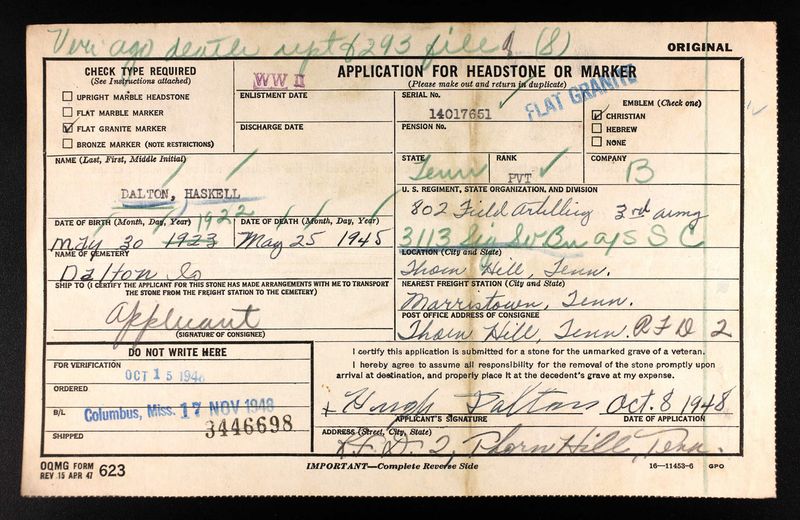 Veri ago death rept & 293 file (8)
ORIGINAL
CHECK TYPE REQUIRED
(See Instructions attached)
UPRIGHT MARBLE HEADSTONE
FLAT MARBLE MARKER
FLAT GRANITE MARKER
BRONZE MARKER (NOTE RESTRICTIONS)
WW II
ENLISTMENT DATE
DISCHARGE DATE
APPLICATION FOR HEADSTONE OR MARKER
(Please make out and return in duplicate)
SERIAL No.
14017651
PENSION No.
FLAT GRANITE
EMBLEM (Check one)
CHRISTIAN
HEBREW
NONE
NAME (Last, First, Middle Initial)
DALTON, HASKELL
STATE
Tenn
RANK
PVT
COMPANY
B
U. S. REGIMENT, STATE ORGANIZATION, AND DIVISION
802 Field Artilling 3rd army
3113 Sig Sv Bn a/S S C
DATE OF BIRTH (Month, Day, Year)
1922
May 30 1923
DATE OF DEATH (Month, Day, Year)
May 25 1945
NAME OF CEMETERY
Dalton Co
LOCATION (City and State)
Thorn Hill, Tenn.
SHIP TO (I CERTIFY THE APPLICANT FOR THIS STONE HAS MADE ARRANGEMENTS WITH ME TO TRANSPORT
THE STONE FROM THE FREIGHT STATION TO THE CEMETERY)
Applicant
(SIGNATURE OF CONSIGNEE)
NEAREST FREIGHT STATION (City and State)
Morristown, Tenn.
POST OFFICE ADDRESS OF CONSIGNEE
Thorn Hill, Tenn. R F D 2
DO NOT WRITE HERE
FOR VERIFICATION
OCT 15 1948
ORDERED
B/L
Columbus, Miss. 17 NOV 1948
3446698
SHIPPED
I certify this application is submitted for a stone for the unmarked grave of a veteran.
I hereby agree to assume all responsibility for the removal of the stone promptly upon
arrival at destination, and properly place it at the decedent's grave at my expense.
x Hugh Dalton Oct. 8, 1948
APPLICANT'S SIGNATURE
DATE OF APPLICATION
ADDRESS (Street, City, State)
R. F. D. 2, Thorn Hill, Tenn.
OQMG FORM
REV 15 APR 47 623
IMPORTANT—Complete Reverse Side
16—11453-6 GPO